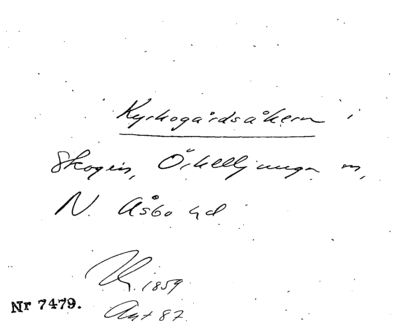 Kyrkogårdsåkern i
Skogen, Örkelljunga sn,
N. Åsbo hd
1859
Nr 7479.
87